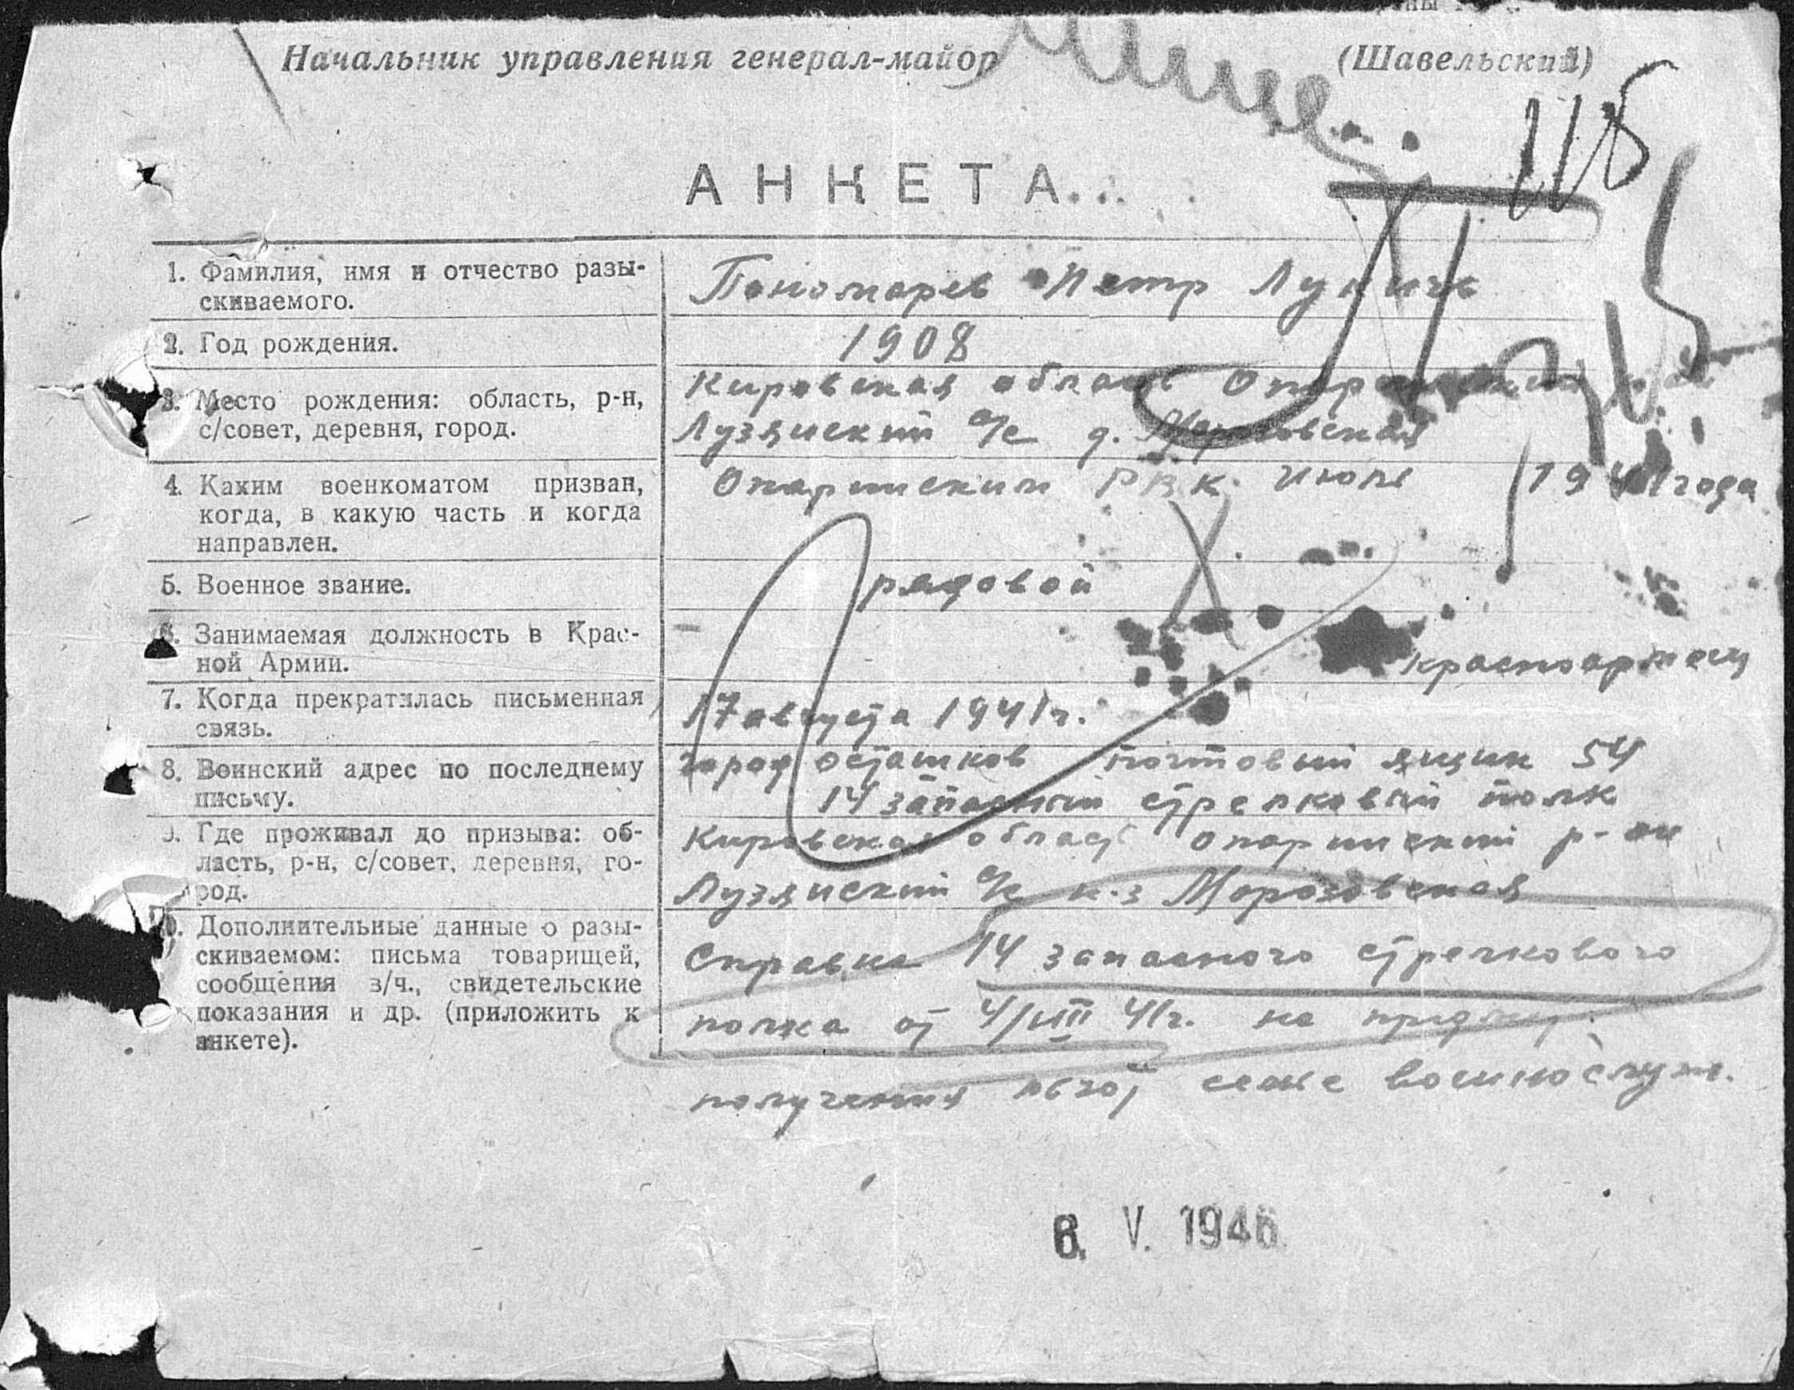 Начальник управления генерал-майор (Шавельский)
118
АНКЕТА
1. Фамилия, имя и отчество разы-
скиваемого.
Пономарев Петр Лукичь
2. Год рождения.
1908
3. Место рождения: область, р-н,
с/совет, деревня, город.
Кировская область Опаринский
Лузянский с/с д.
4. Каким военкоматом призван,
когда, в какую часть и когда
направлен.
Опаринским РВК Июль 1941 года
5. Военное звание.
рядовой
6. Занимаемая должность в Крас-
ной Армии.
красноармеец
7. Когда прекратилась письменная
связь.
17 августа 1941 г.
8. Воинский адрес по последнему
письму.
город осташков почтовый ящик 54
14 запасный стрелковый полк
9. Где проживал до призыва: об-
ласть, р-н, с/совет, деревня, го-
род.
Кировская област опаринский р-он
Лузянский с/с к-з Морозовская
10. Дополнительные данные о разы-
скиваемом: письма товарищей,
сообщения з/ч., свидетельские
показания и др. (приложить к
анкете).
Справка 14 запасного стрелкового
полка от 4/VIII 41г. на
получения льгот семье военнослуж.
6. V. 1946